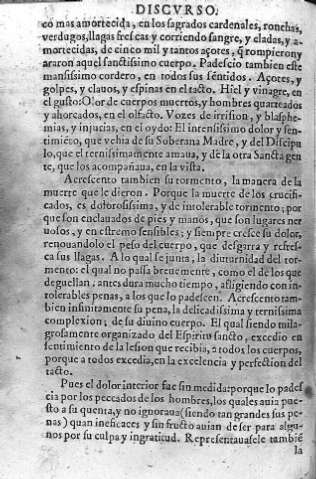 DISCVRSO.
co mas amortecida, en los sagrados cardenales, ronchas,
verdugos, llagas frescas y corriendo sangre, y eladas, y a-
mortecidas, de cinco mil y tantos açotes, q̃ rompieron y
araron aquel sanctissimo cuerpo. Padescio tambien este
mansissimo cordero, en todos sus sentidos. Açotes, y
golpes, y clauos, y espinas en el tacto. Hiel y vinagre, en
el gusto: Olor de cuerpos muertos, y hombres quarteados
y ahorcados, en el olfacto. Vozes de irrision, y blasphe-
mias, y injurias, en el oydo: El intensissimo dolor y sen-
timiẽto, que vehia de su Soberana Madre, y del Discipu
lo, que el ternissimamente amaua, y de la otra Sancta gen
te, que los acompañaua, en la vista.
Acrescento tambien su tormento, la manera de la
muerte que le dieron. Porque la muerte de los crucifi-
cados, es dolorosissima, y de intolerable tormento; por
que son enclauados de pies y manos, que son lugares ner
uosos, y en estremo sensibles; y siempre cresce su dolor,
renouandolo el peso del cuerpo, que desgarra y refres-
ca sus llagas. A lo qual se junta, la diuturnidad del tor-
mento: el qual no passa breuemente, como el de los que
deguellan: antes dura mucho tiempo, afligiendo con in-
tolerables penas, a los que lo padescen. Acrescento tam-
bien infinitamente su pena, la delicadissima y ternissima
complexion, de su diuino cuerpo. El qual siendo mila-
grosamente organizado del Espiritu sancto, excedio en
sentimiento de la lesion que recibia, a todos los cuerpos,
porque a todos excedia, en la excelencia y perfection del
tacto.
Pues el dolor interior fue sin medida: porque lo padес
cia por los peccados de los hombres, los quales auia pue-
sto a su quenta, y no ignoraua (siendo tan grandes sus pe-
nas) quan ineficaces y sin fructo auian de ser para algu-
nos por su culpa y ingratitud. Representauasele tambiẽ
la